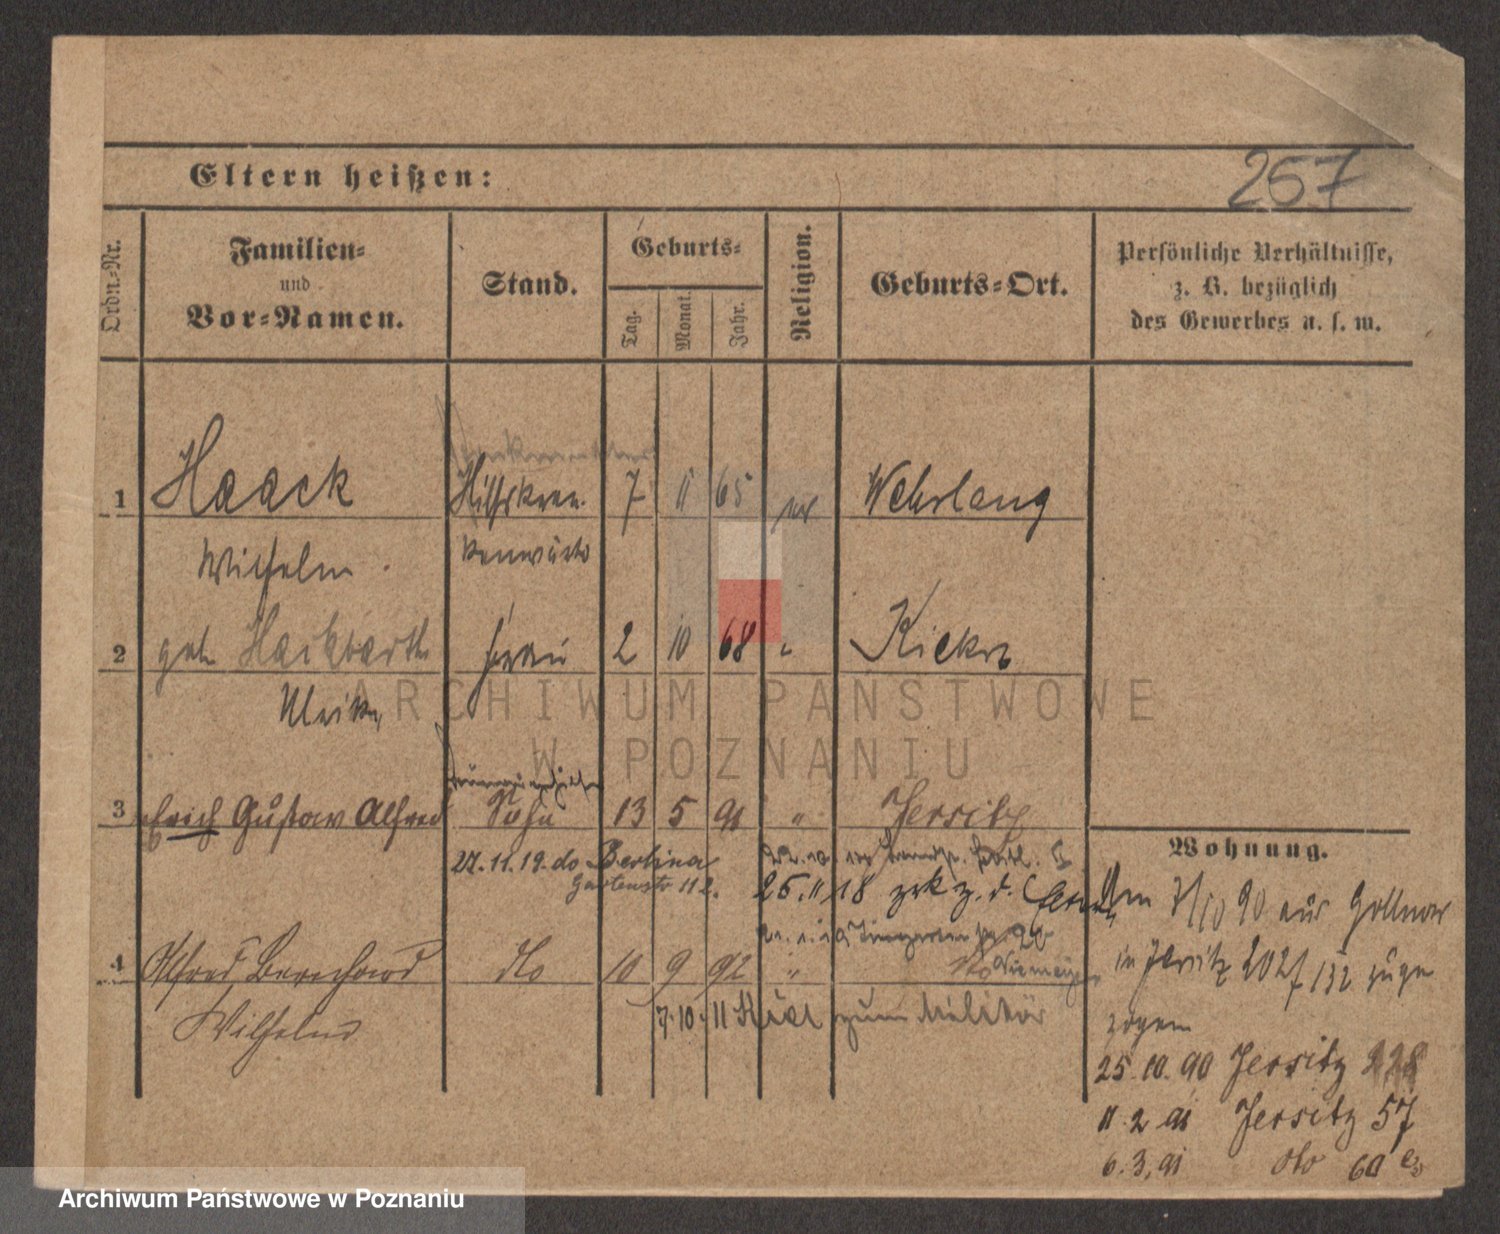 Eltern heißen:
257
Ordn.-Nr.
Familien-
und
Vor-Namen.
Stand.
Geburts-
Tag.
Monat.
Jahr.
Religion.
Geburts-Ort.
Persönliche Verhältnisse,
z. B. bezüglich
des Gewerbes u. s. w.
1 Haack Hilfskran. 7 11 65 ev Wehrlang
Wilhelm kenwärter
2 geb. Frau 2 10 68 " Kiekrz
Ulrike
3 Erich Gustav Alfred Sohn 13 5 91 " Jersitz
27.11.19. do Berlin
Gartenstr 112.
25.11.18 zrk z. d. Eltern
4 Alfred Bernhard do 10 9 92 "
Wilhelm
7.10.11 Kiel zum Militär
Wohnung.
Am 7/10 90 aus Gollnow
in Jersitz 202/132 zuge
zogen
25.10.90 Jersitz 228
11.2 91 Jersitz 57
6.3.91 do 60
ARCHIWUM PAŃSTWOWE
W POZNANIU
Archiwum Państwowe w Poznaniu